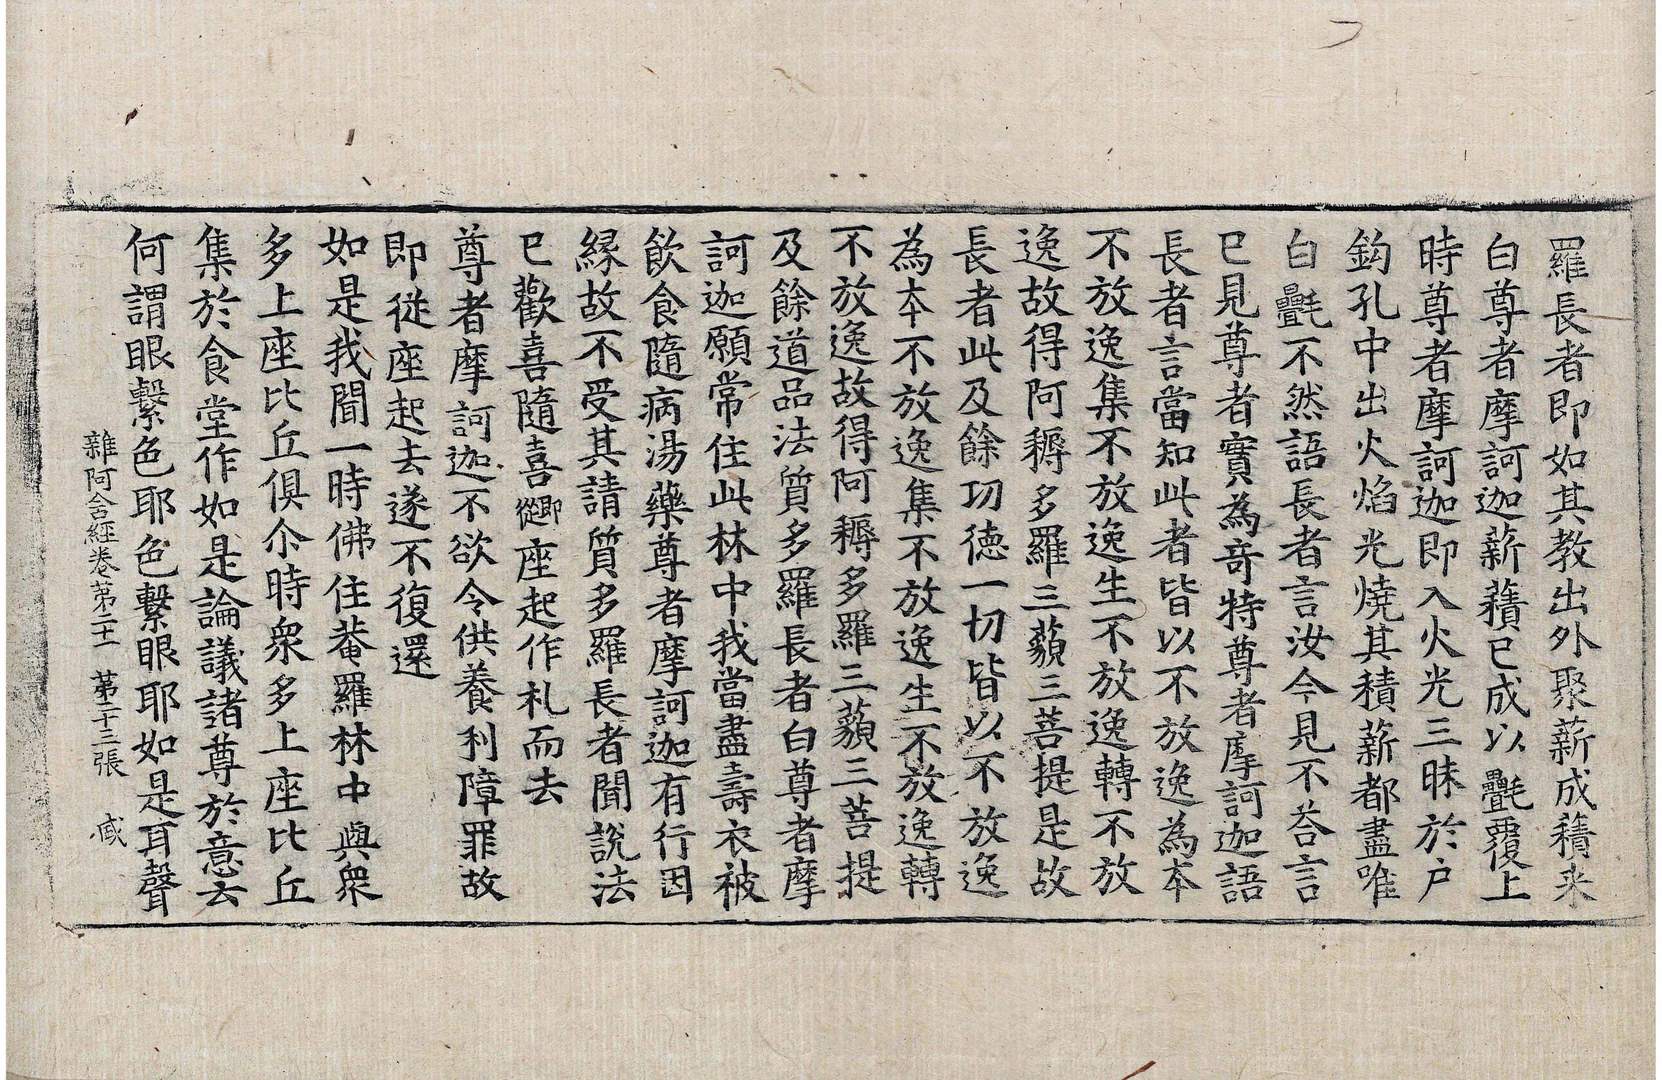 羅長者即如其教出外聚薪成𧂐来
白尊者摩訶迦薪𧂐已成以㲲覆上
時尊者摩訶迦即入火光三昧於户
鈎孔中出火焰光燒其積薪都盡唯
白㲲不然語長者言汝今見不荅言
已見尊者實為竒特尊者摩訶迦語
長者言當知此者皆以不放逸為本
不放逸集不放逸生不放逸轉不放
逸故得阿耨多羅三藐三菩提是故
長者此及餘功徳一切皆以不放逸
為本不放逸集不放逸生不放逸轉
不放逸故得阿耨多羅三藐三菩提
及餘道品法質多羅長者白尊者摩
訶迦願常住此林中我當盡壽衣被
飲食隨病湯藥尊者摩訶迦有行因
縁故不受其請質多羅長者聞說法
已歡喜隨喜即從座起作礼而去
尊者摩訶迦不欲令供養利障罪故
即從座起去遂不復還
如是我聞一時佛住菴羅林中與衆
多上座比丘俱尒時衆多上座比丘
集於食堂作如是論議諸尊於意云
何謂眼繫色耶色繫眼耶如是耳聲
雜阿含經卷第二十一　第二十三張　㦴